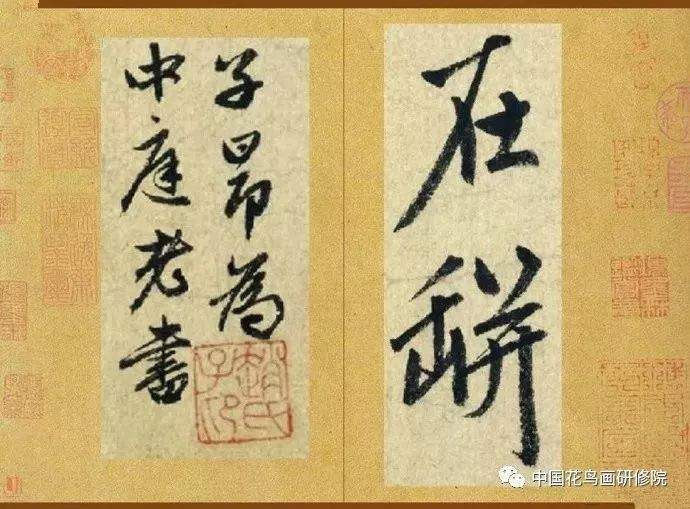 在
缾
子昂為
中庭老書
趙氏子昂
中国花鸟画研修院